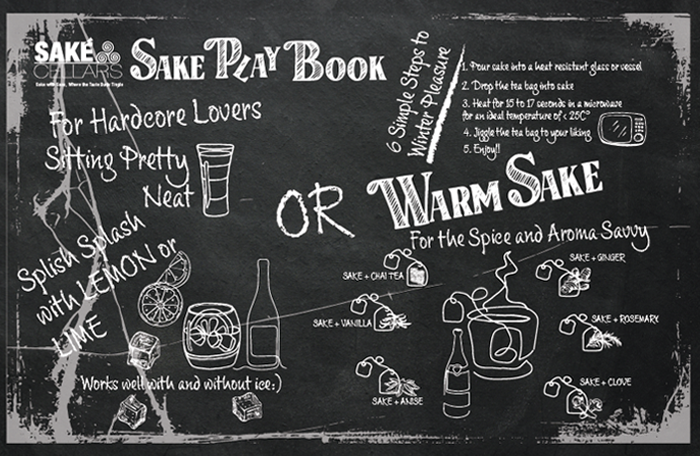 SAKÉ
CELLARS
SAKE PLAY BOOK
For Hardcore Lovers
Sitting Pretty
Neat
Splish Splash
with LEMON or
LIME
Works well with and without ice:)
OR
6 Simple Steps to
Winter Pleasure
1. Pour sake into a heat resistant glass or vessel
2. Drop the tea bag into sake
3. Heat for 15 to 17 seconds in a microwave
for an ideal temperature of < 25C°
4. Jiggle the tea bag to your liking
5. Enjoy!!
WARM SAKE
For the Spice and Aroma Savvy
SAKE + CHAI TEA
SAKE + VANILLA
SAKE + ANISE
SAKE + GINGER
SAKE + ROSEMARY
SAKE + CLOVE